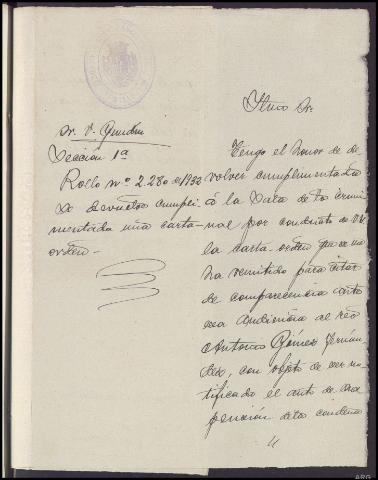 Sr. V. Gundin
Sección 1ª
Rollo nº 2.280 de 1932
Se devuelve cumpli-
mentada una carta-
orden.-
Iltmo Sr.
Tengo el honor de de-
volver cumplimentada
á la Sala de lo Crimi-
nal por conducto de V.I.
la carta-orden que se me
ha remitido para citar
de comparecencia ante
esa Audiencia al reo
Antonio Gómez Fernán-
dez, con objeto de ser no-
tificado el auto de sus-
pensión de la condena
ARG